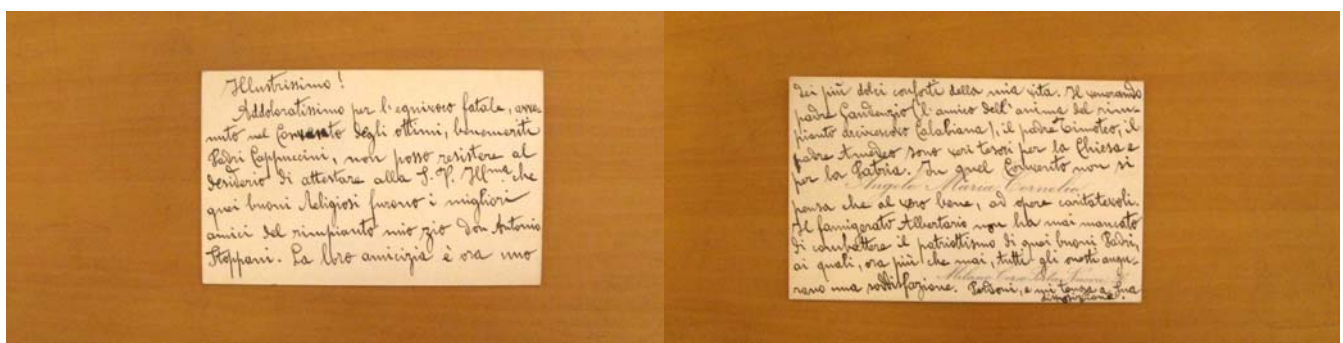 Illustrissimo!
Addoloratissimo per l'equivoco fatale, avve-
nuto nel Convento degli ottimi, benemeriti
Padri Cappuccini, non posso resistere al
desiderio di attestare alla S. V. Illma che
quei buoni Religiosi furono i migliori
amici del rimpianto mio zio don Antonio
Stoppani. La loro amicizia è ora uno
dei più dolci conforti della mia vita. Il venerando
padre Gaudenzio (l'amico dell'anima del rim-
pianto arcivescovo Calabiana), il padre Timoteo, il
padre Amedeo sono veri tesori per la Chiesa e
per la Patria. In quel Convento non si
Angelo Maria Cornelio
pensa che al vero bene, ad opere caritatevoli.
Il famigerato Albertario non ha mai mancato
di combattere il patriottismo di quei buoni Padri,
ai quali, ora più che mai, tutti gli onesti augu-
Milano Corso
rano una soddisfazione. Perdoni, e mi tenga a Sua
disposizione.